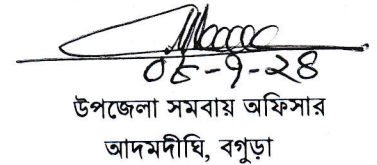 ০৮-৭-২৪
উপজেলা সমবায় অফিসার
আদমদীঘি, বগুড়া